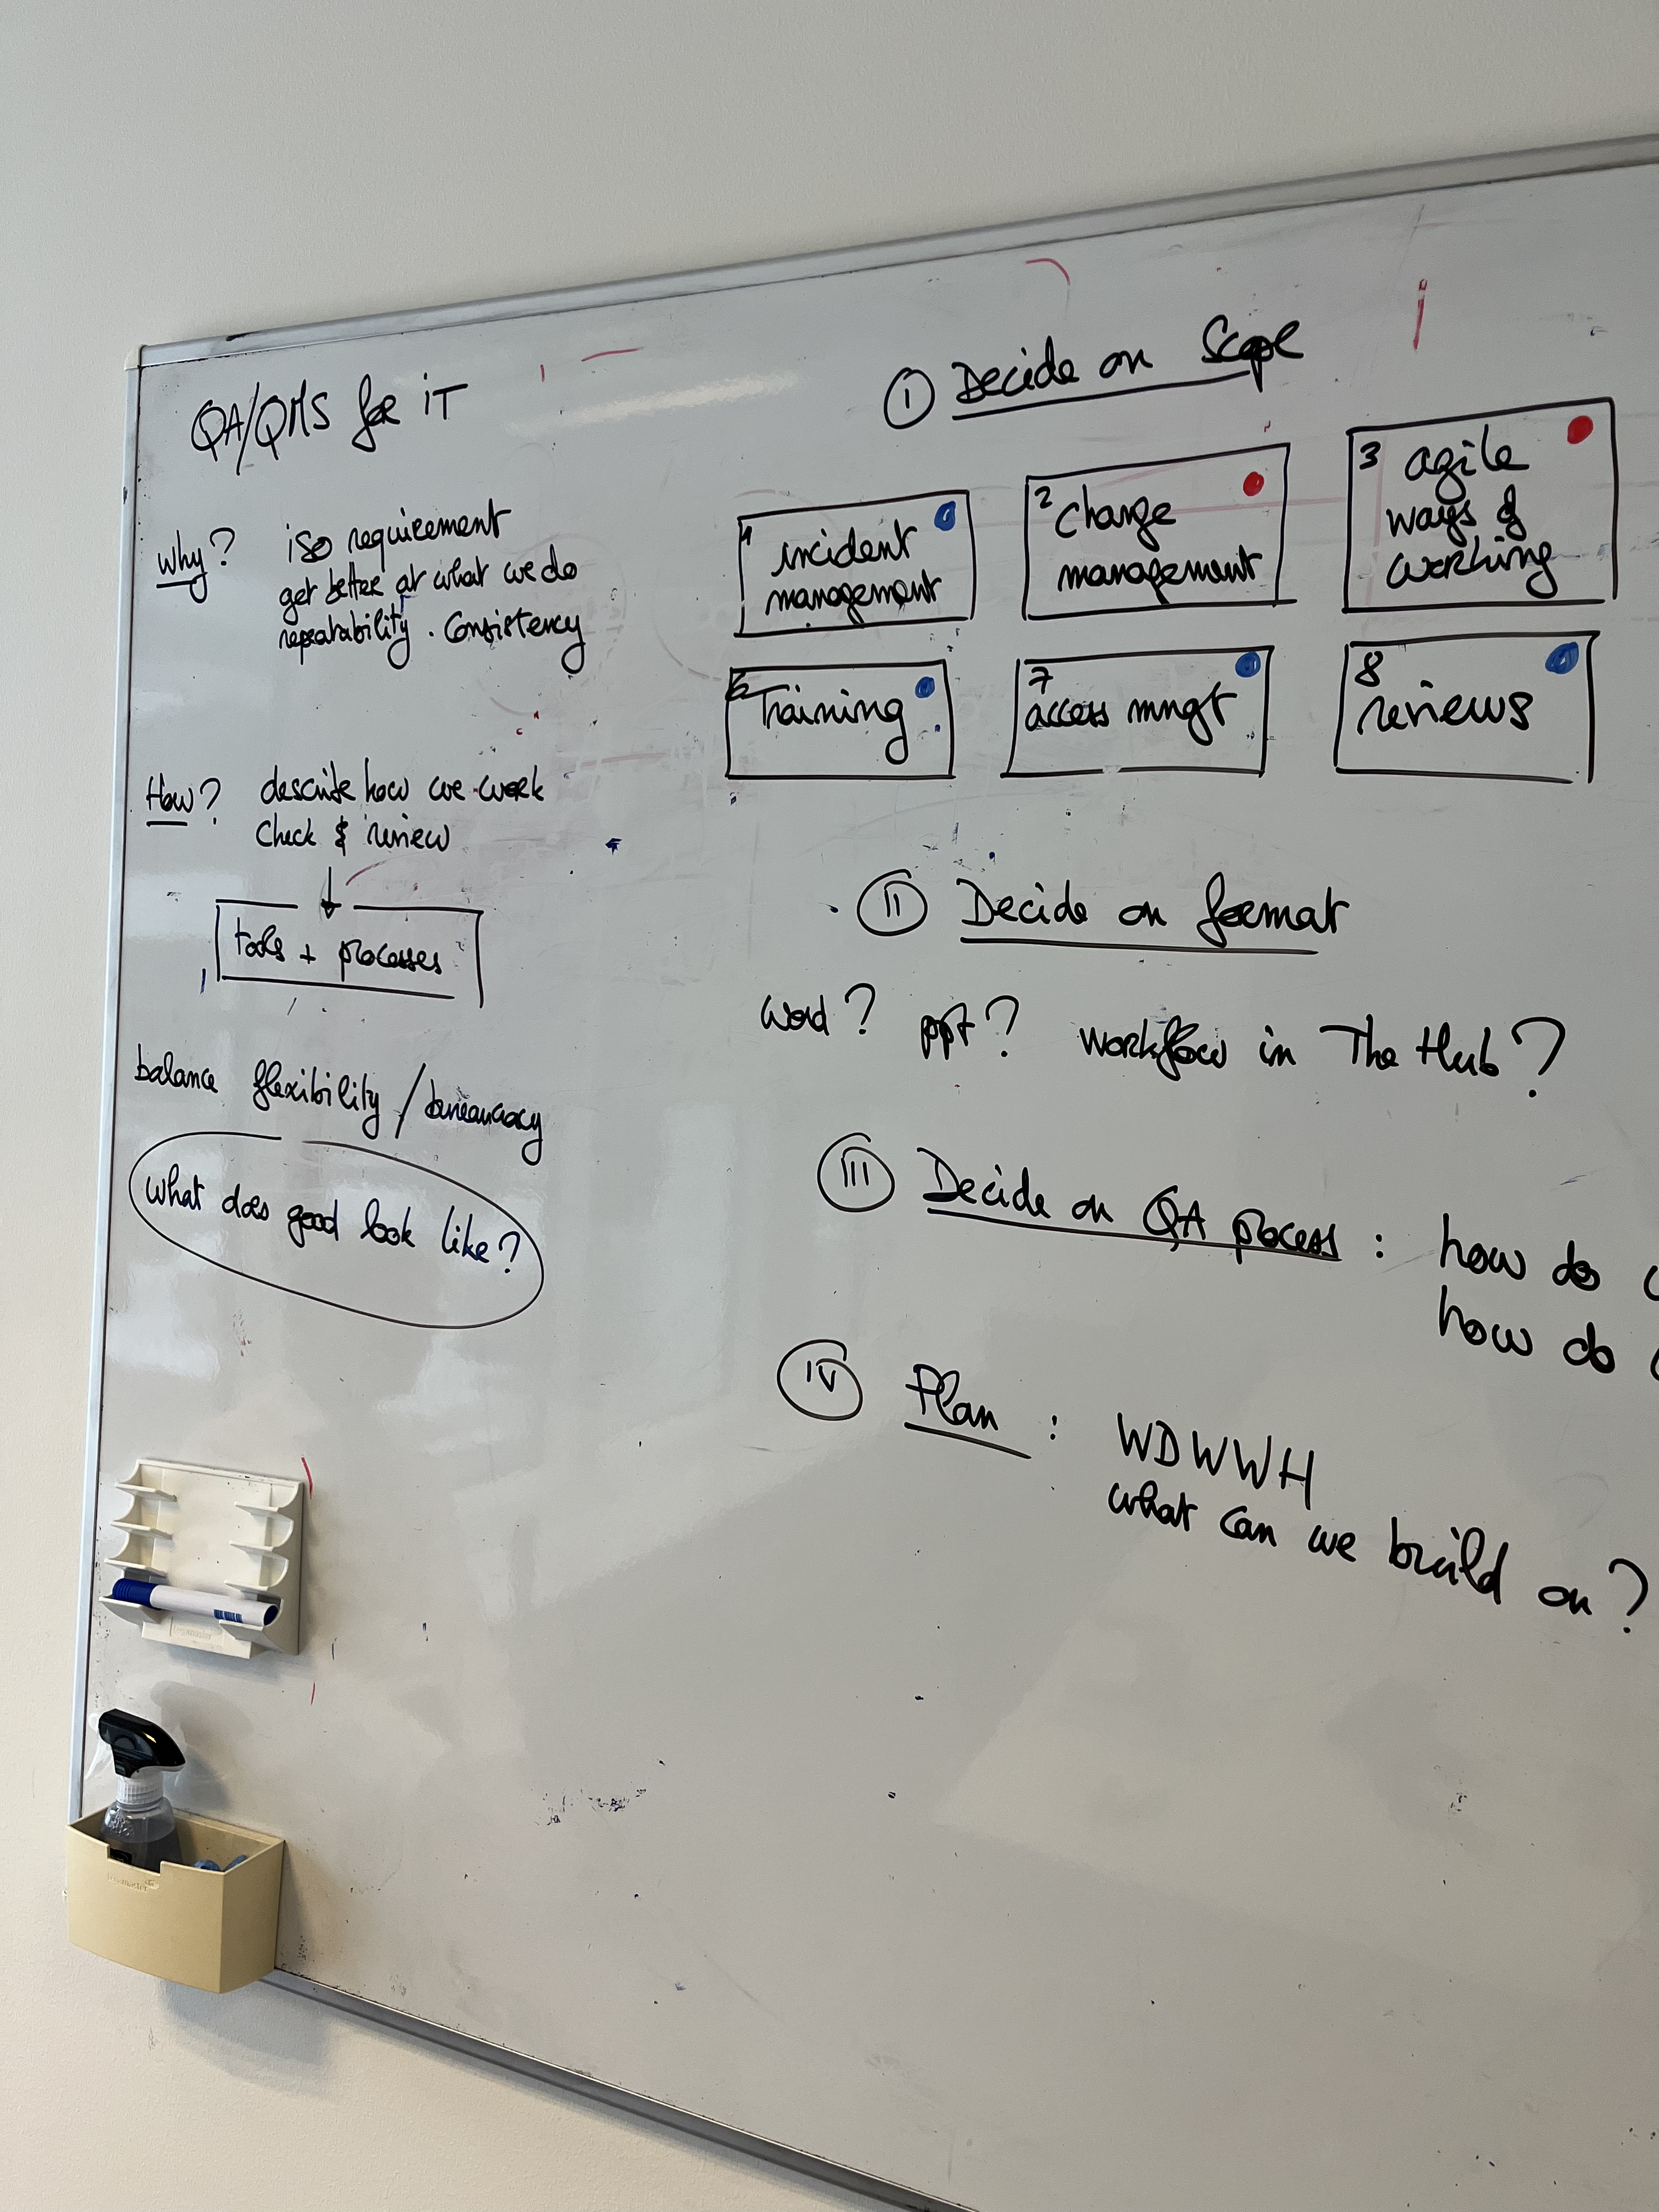 QA/QMS for iT
Why?
iso requirement
get better at what we do
repeatability . Consistency
How?
describe how we work
Check & review
tools + processes
balance flexibility / bureaucracy
What does good look like?
I Decide on Scope
1
incident
management
2
change
management
3
agile
ways of
working
6
Training
7
access mngt
8
reviews
II Decide on format
Word? ppt? Workflow in The Hub?
III Decide on QA process : how do
how do
IV Plan : WDWWH
what can we build on?